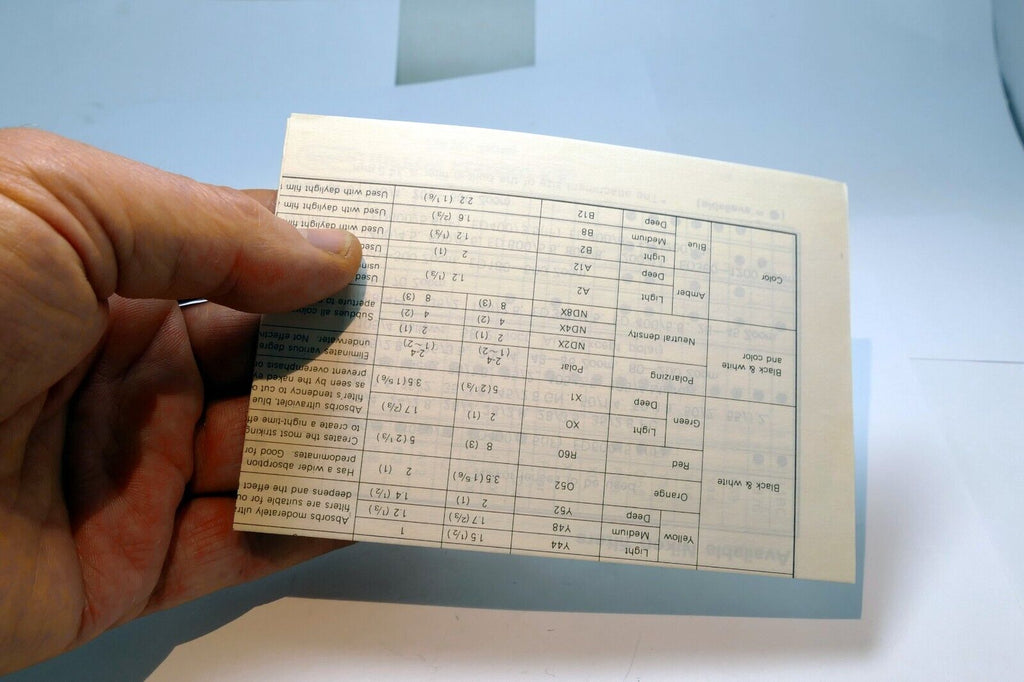 Light Y44 1.5 (1/2) 1
Yellow Medium Y48 1.7 (2/3) 1.2 (1/3) Absorbs moderately ultr
Deep Y52 2 (1) 1.4 (1/2) filters are suitable for ou
deepens and the effect
Black & white Orange O52 3.5 (1 5/6) 2 (1) Has a wider absorption
predominates. Good for
Red R60 8 (3) 5 (2 1/3) Creates the most striking
to create a night-time eff
Green Light XO 2 (1) 1.7 (2/3) Absorbs ultraviolet, blue,
filter's tendency to cut o
Deep X1 5 (2 1/3) 3.5 (1 5/6) as seen by the naked ey
prevent overemphasis o
Black & white and color Polarizing Polar 2-4 (1~2) 2-4 (1~2) Eliminates various degre
underwater. Not effectiv
Neutral density ND2X 2 (1) 2 (1)
ND4X 4 (2) 4 (2) Subdues all colou
ND8X 8 (3) 8 (3) aperture to
Color Amber Light A2 1.2 (1/3) Used
using
Deep A12 2 (1) Used
Blue Light B2 1.2 (1/3) Used with daylight film
Medium B8 1.6 (2/3) Used with daylight film
Deep B12 2.2 (1 1/6) Used with daylight film